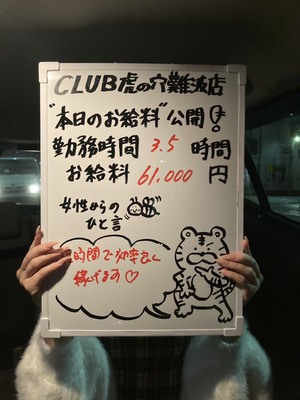 CLUB虎の穴難波店
"本日のお給料"公開!
勤務時間 3.5 時間
お給料 61,000 円
女性からの
ひと言
時間で効率良く
稼げます♡